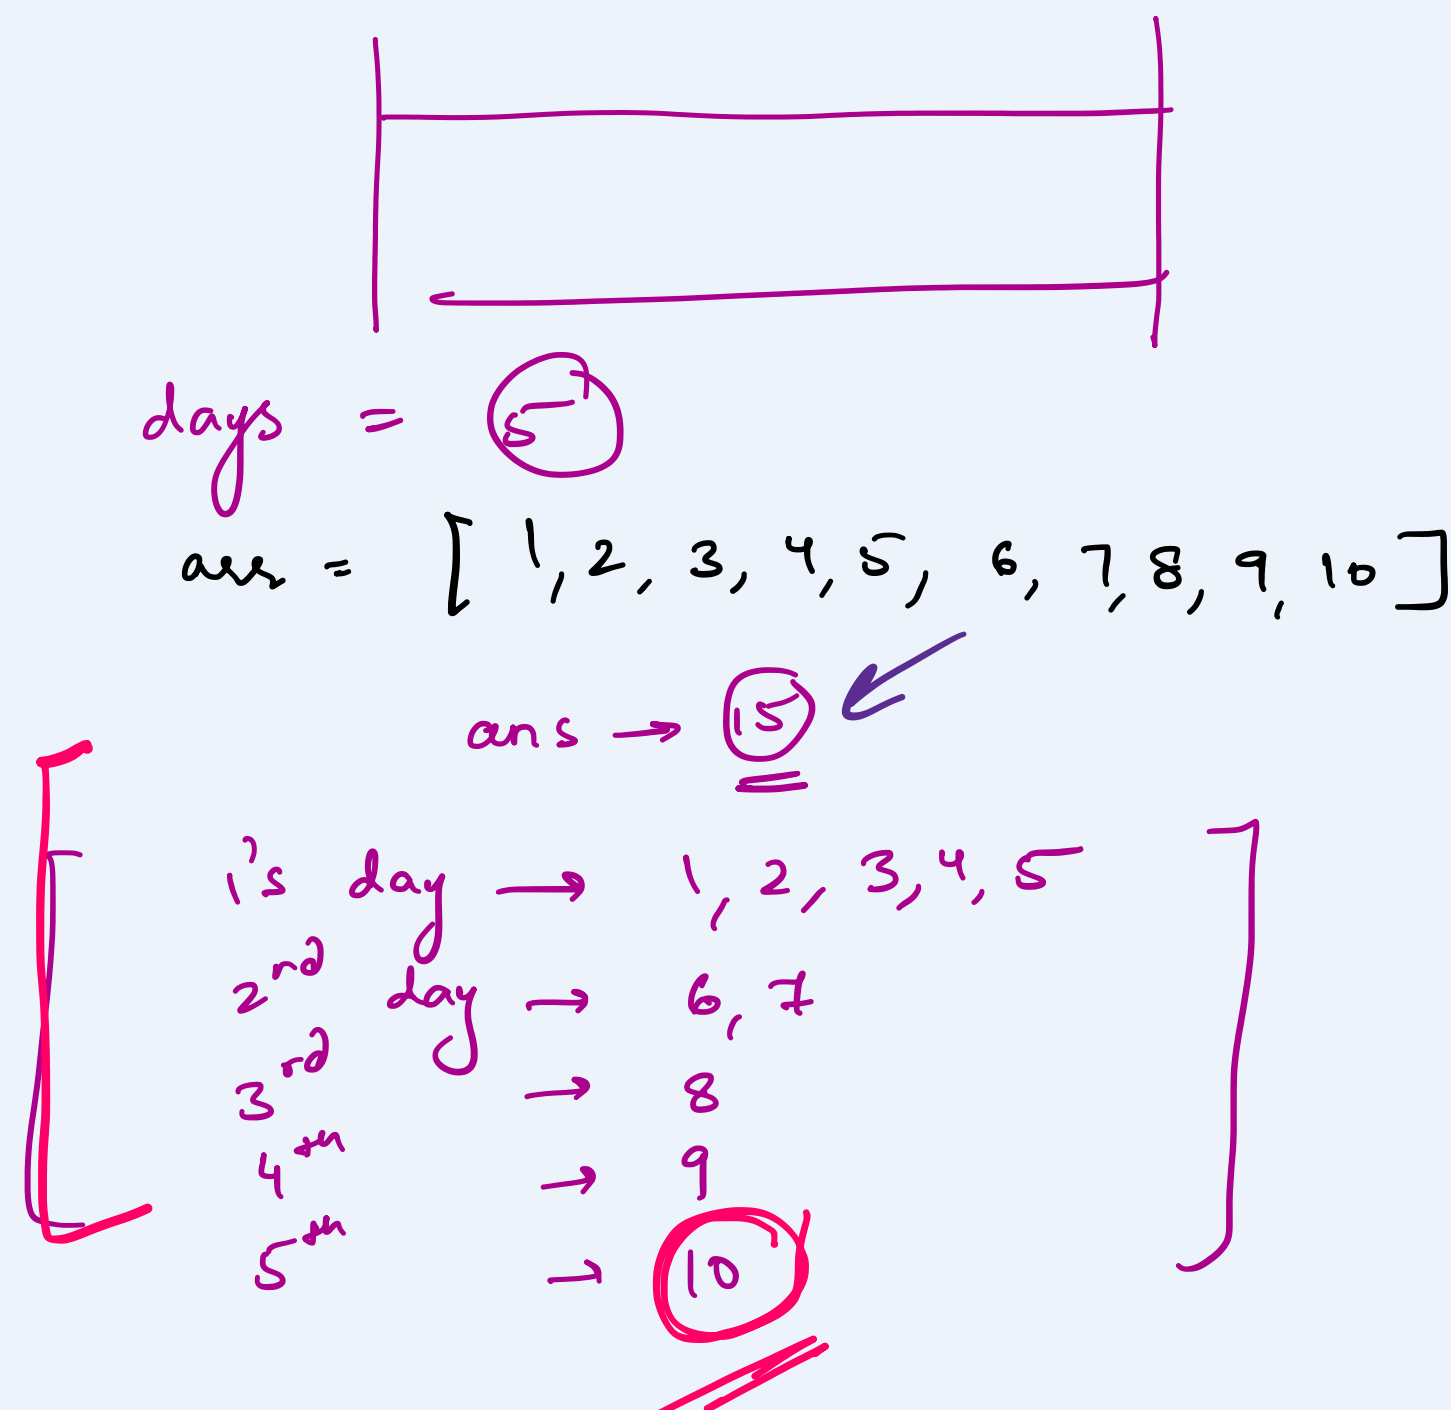 days = 5
arr = [ 1, 2, 3, 4, 5, 6, 7, 8, 9, 10 ]
ans → 15
1's day → 1, 2, 3, 4, 5
2rd day → 6, 7
3rd → 8
4th → 9
5th → 10